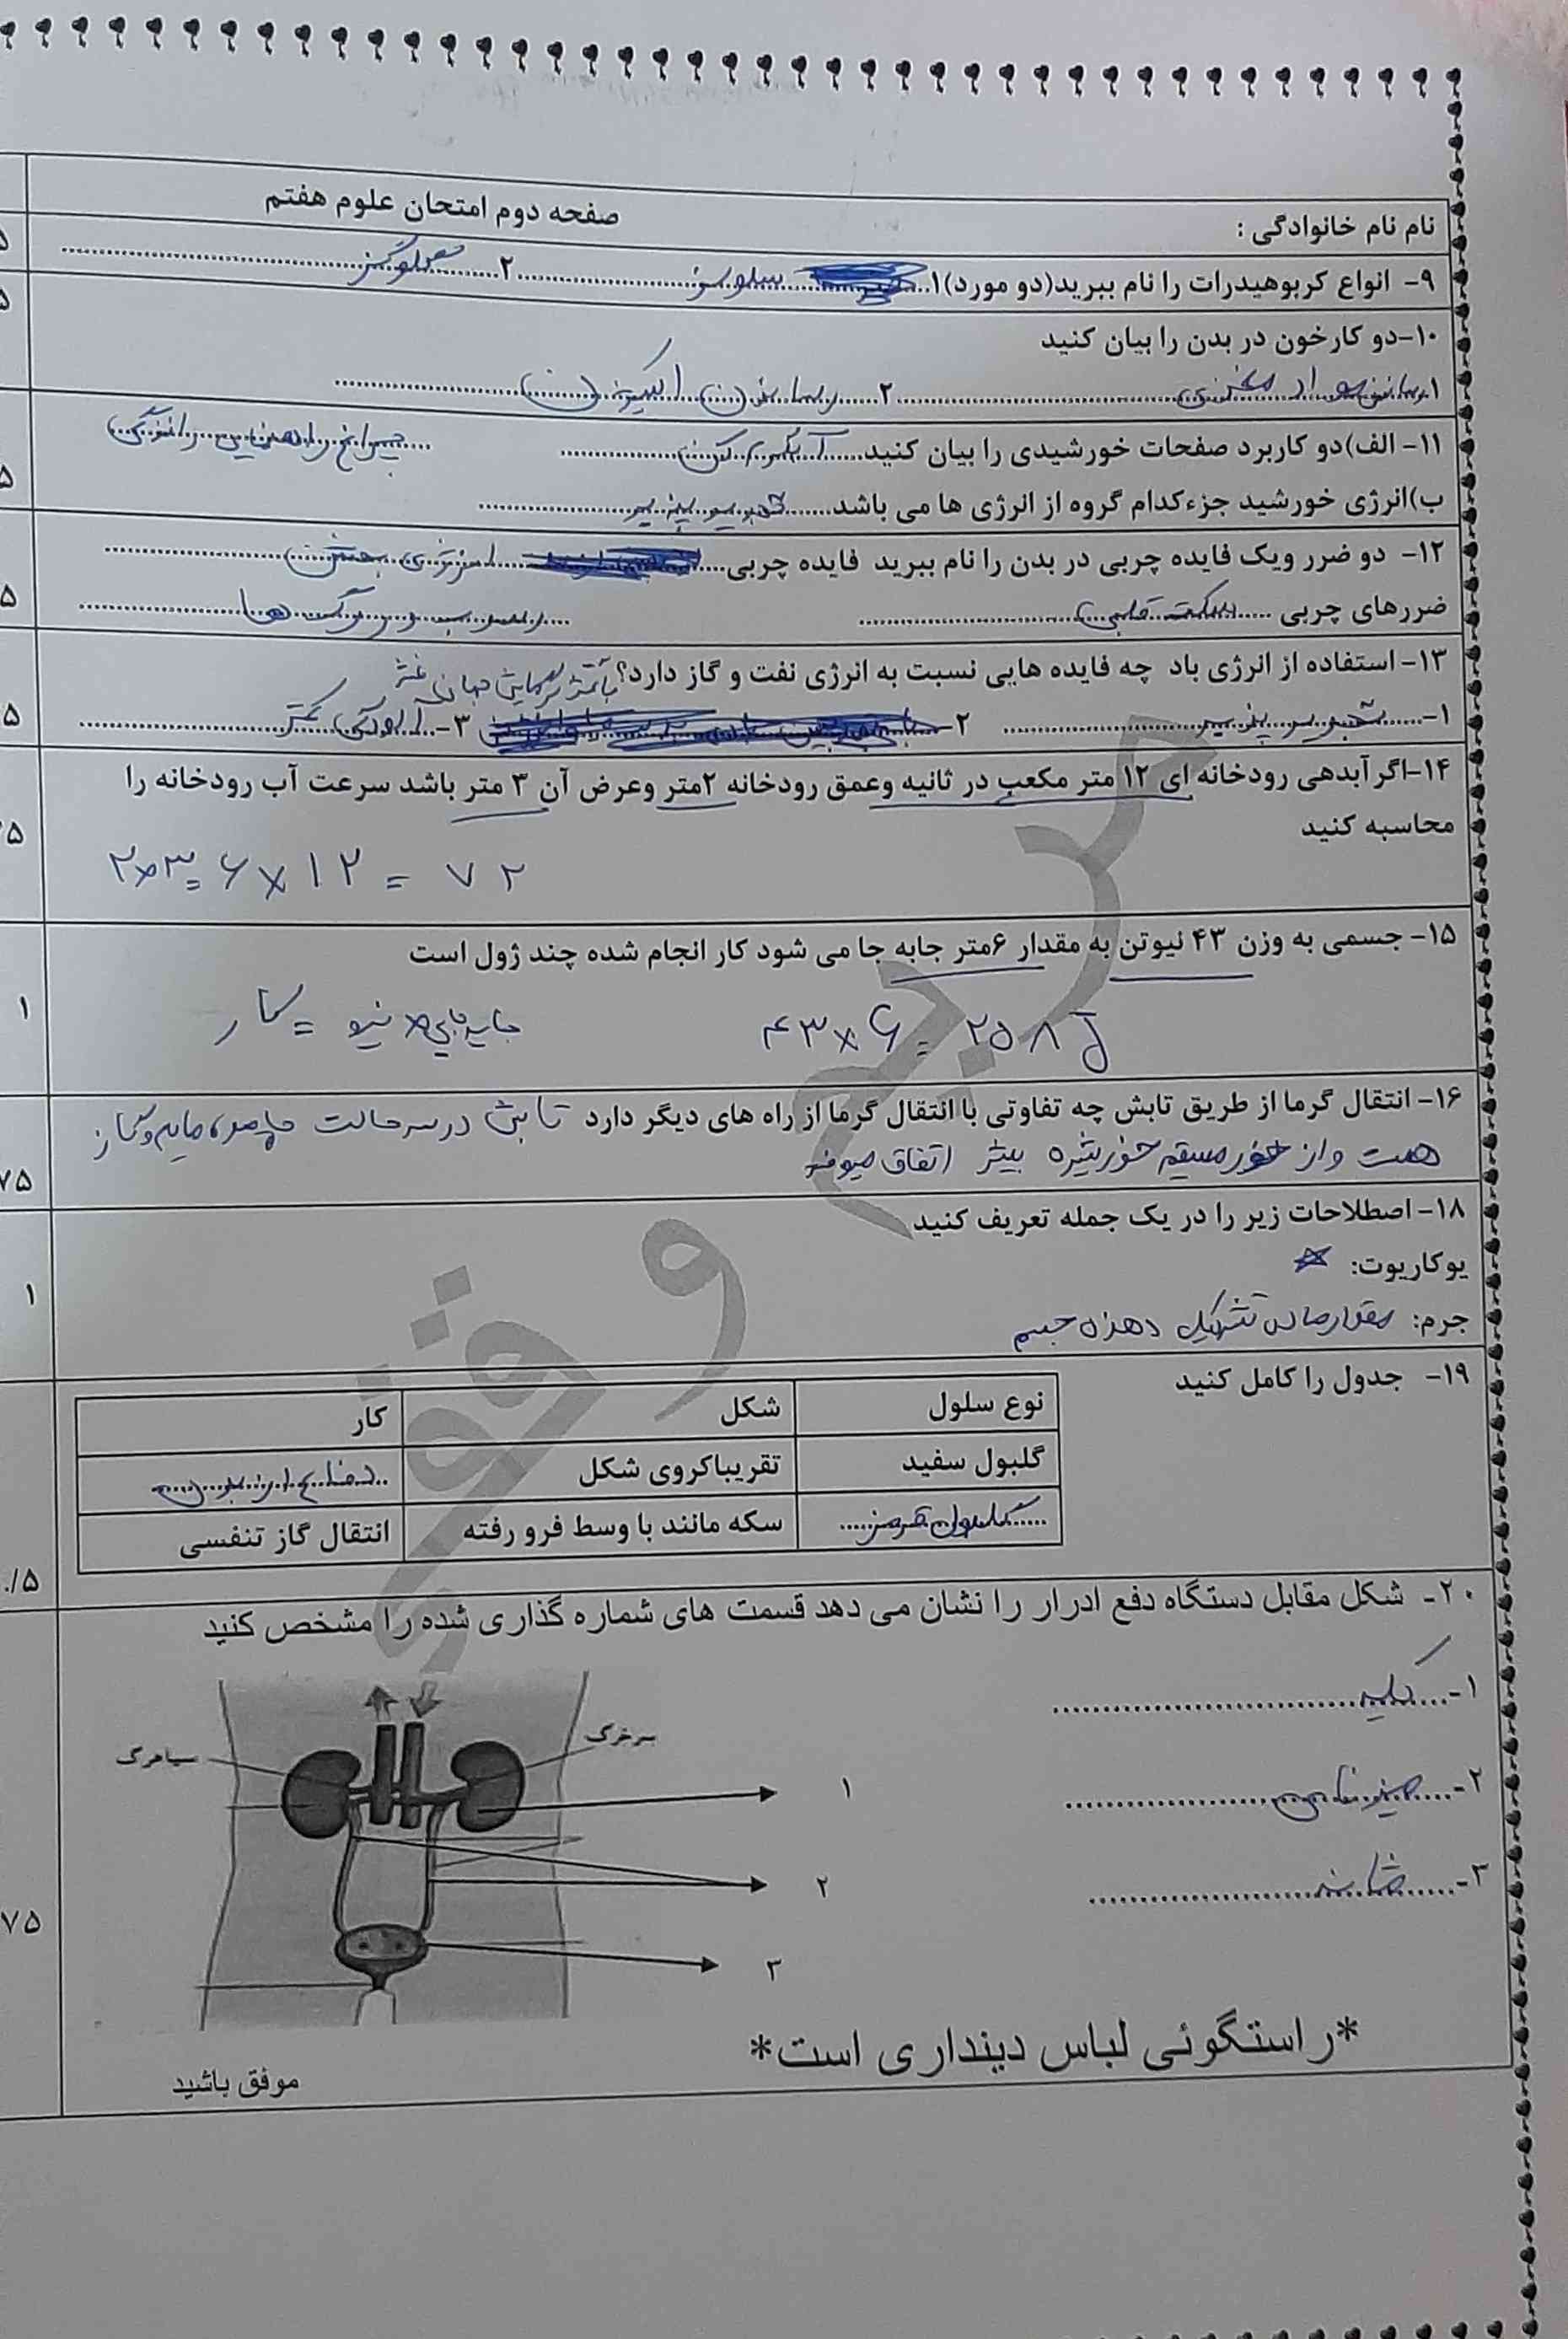 نام نام خانوادگی : صفحه دوم امتحان علوم هفتم
۹- انواع کربوهیدرات را نام ببرید(دو مورد)۱.......... سلولز ..........۲.......... گلوکز ..........
۱۰-دو کارخون در بدن را بیان کنید
۱. رسانش مواد مغذی ..........۲...... رساندن اکسیژن ..........
۱۱- الف)دو کاربرد صفحات خورشیدی را بیان کنید...... آبگرم کن .......... ...... چراغ راهنمایی رانندگی
ب)انرژی خورشید جزءکدام گروه از انرژی ها می باشد...... تجدید پذیر ..........
۱۲- دو ضرر ویک فایده چربی در بدن را نام ببرید فایده چربی ...... انرژی بخش ..........
ضررهای چربی ...... سکته قلبی .......... ...... رسوب در رگ ها ..........
۱۳- استفاده از انرژی باد چه فایده هایی نسبت به انرژی نفت و گاز دارد؟ باعث گرمایش جهانی
۱-...... تجدید پذیر .......... ۲- ۳-... آلودگی کمتر ..........
۱۴-اگر آبدهی رودخانه ای ۱۲ متر مکعب در ثانیه وعمق رودخانه ۲متر وعرض آن ۳ متر باشد سرعت آب رودخانه را
محاسبه کنید
۲×۳=۶×۱۲=۷۲
۱۵- جسمی به وزن ۴۳ نیوتن به مقدار ۶متر جابه جا می شود کار انجام شده چند ژول است
۴۳×۶=۲۵۸J جابه جایی×نیرو=کار
۱۶- انتقال گرما از طریق تابش چه تفاوتی با انتقال گرما از راه های دیگر دارد تابش در سه حالت جامد، مایع و گاز
هست و از مستقیم خورشید بیشتر اتفاق میوفته
۱۸- اصطلاحات زیر را در یک جمله تعریف کنید
یوکاریوت:
۱
جرم: مقدار ماده تشکیل دهنده جسم
۱۹- جدول را کامل کنید
نوع سلول شکل کار
گلبول سفید تقریباکروی شکل ..دفاع از بدن....
.....گلبول قرمز..... سکه مانند با وسط فرو رفته انتقال گاز تنفسی
۲۰- شکل مقابل دستگاه دفع ادرار را نشان می دهد قسمت های شماره گذاری شده را مشخص کنید
۱-.....کلیه..........
سرخرگ
سیاهرگ
۱
۲-.....میزنای..........
۲
۳-.....مثانه..........
۳
*راستگوئی لباس دینداری است*
موفق باشید
مرجع وقف